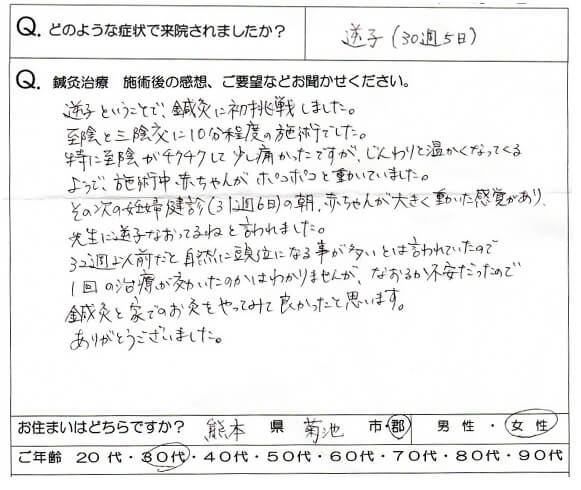 Q. どのような症状で来院されましたか？ 逆子（30週5日）
Q. 鍼灸治療　施術後の感想、ご要望などお聞かせください。
逆子ということで、鍼灸に初挑戦しました。
至陰と三陰交に10分程度の施術でした。
特に至陰がチクチクして少し痛かったですが、じんわりと温かくなってくる
ようで、施術中、赤ちゃんがポコポコと動いていました。
その次の妊婦健診（31週6日）の朝、赤ちゃんが大きく動いた感覚があり、
先生に逆子なおってるねと言われました。
32週以前だと自然に頭位になる事が多いとは言われていたので
1回の治療が効いたのかはわかりませんが、なおるか不安だったので
鍼灸と家でのお灸をやってみて良かったと思います。
ありがとうございました。
お住まいはどちらですか？ 熊本 県 菊池 市・郡 男性・女性
ご年齢 20代・30代・40代・50代・60代・70代・80代・90代